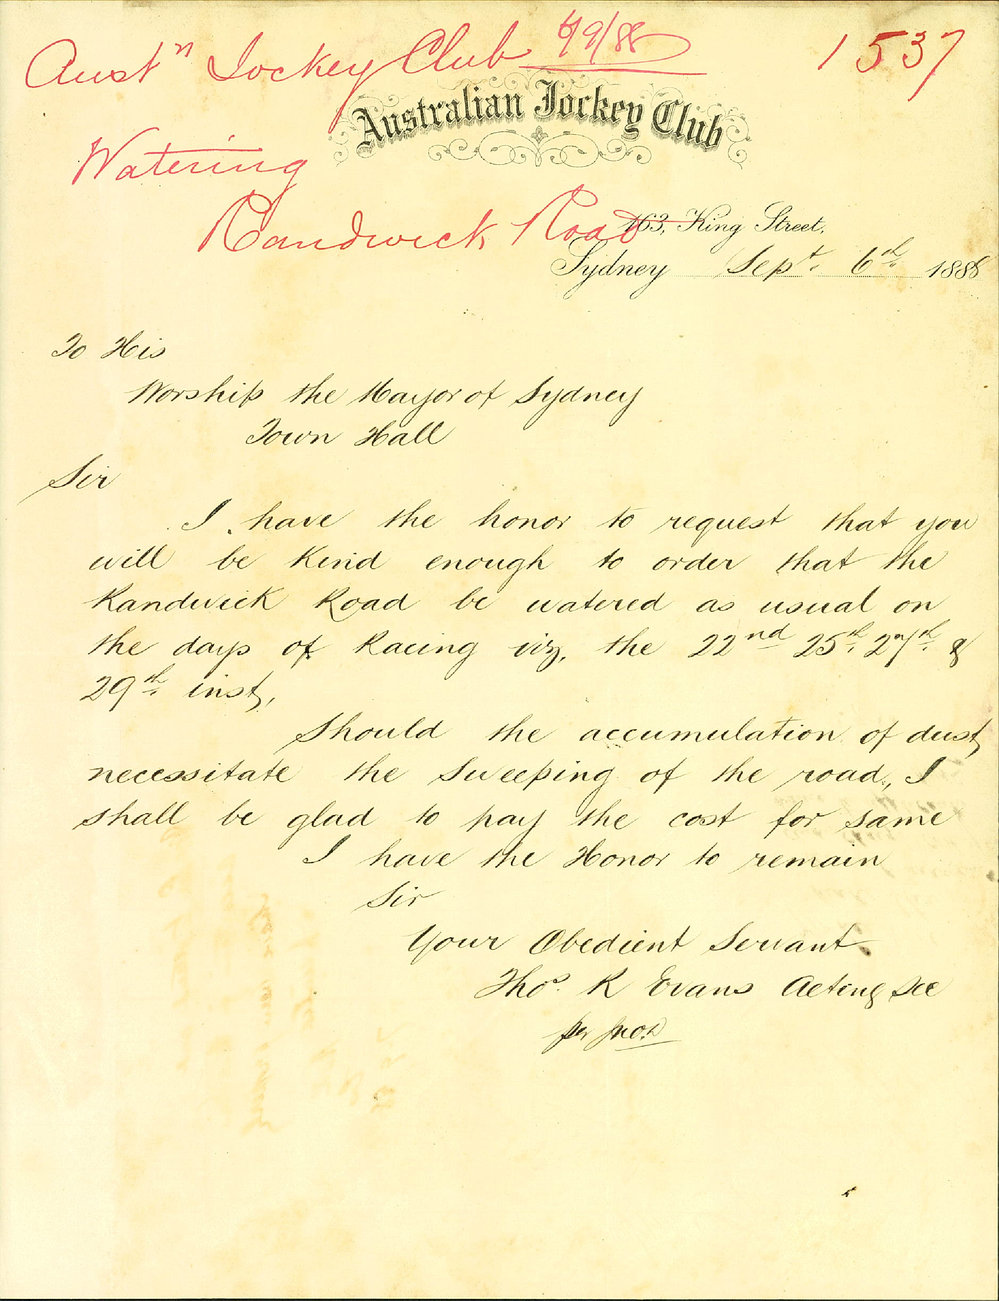 Austn Jockey Club 6/9/88 1537
Australian Jockey Club
Watering
Randwick Road
163, King Street,
Sydney Sept. 6th. 1888
To His
Worship the Mayor of Sydney
Town Hall
Sir
I have the honor to request that you
will be kind enough to order that the
Randwick Road be watered as usual on
the days of Racing viz, the 22nd 25th. 27th. &
29th. inst,
Should the accumulation of dust
necessitate the sweeping of the road, I
shall be glad to pay the cost for same
I have the Honor to remain
Sir
Your Obedient Servant
Thos. R Evans Acting Sec
per